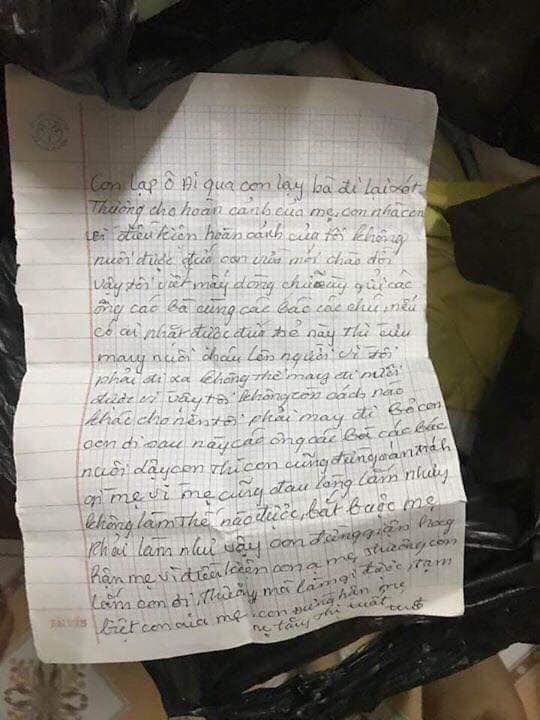 Con lạp ô đi qua con lạy bà đi lại xót
Thương cho hoàn cảnh của mẹ, con nhà con
vì điều kiện hoàn cảnh của tôi không
nuôi được đứa con vừa mới chào đời
vậy tôi viết mấy dòng chữ này gửi các
ông các bà cùng các bác các chú, nếu
có ai nhặt được đứa trẻ này thì cưu
mang nuôi cháu lên người vì tôi
phải đi xa không thể mang đi nuôi
được vì vậy tôi không còn cách nào
khác cho nên tôi phải may đi bỏ con
con đi sau này các ông các bà các bác
nuôi dậy con thì con cũng đừng oán trách
mẹ vì mẹ cũng đau lòng lắm nhưng
không làm thế nào được, bắt buộc mẹ
phải làm như vậy con đừng giận hoay
hận mẹ vì điều kiện con ạ mẹ thương con
lắm con ơi, Thương mà làm gì được, tạm
biệt con của mẹ, con đừng hận mẹ
HẢI TIẾN